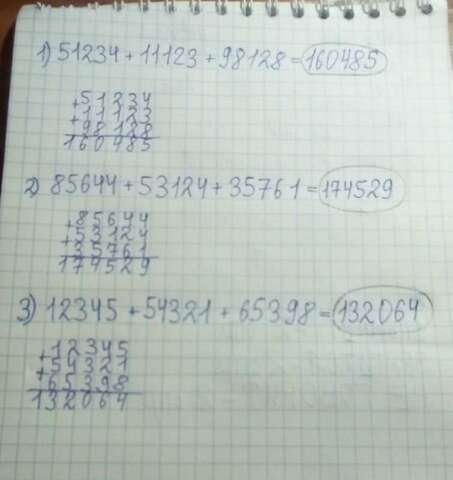 1) 51234 + 11123 + 98128 = 160485
+51234
+11123
98128
160485
2) 85644 + 53124 + 35761 = 174529
+85644
+53124
35761
174529
3) 12345 + 54321 + 65398 = 132064
+12345
+54321
65398
132064